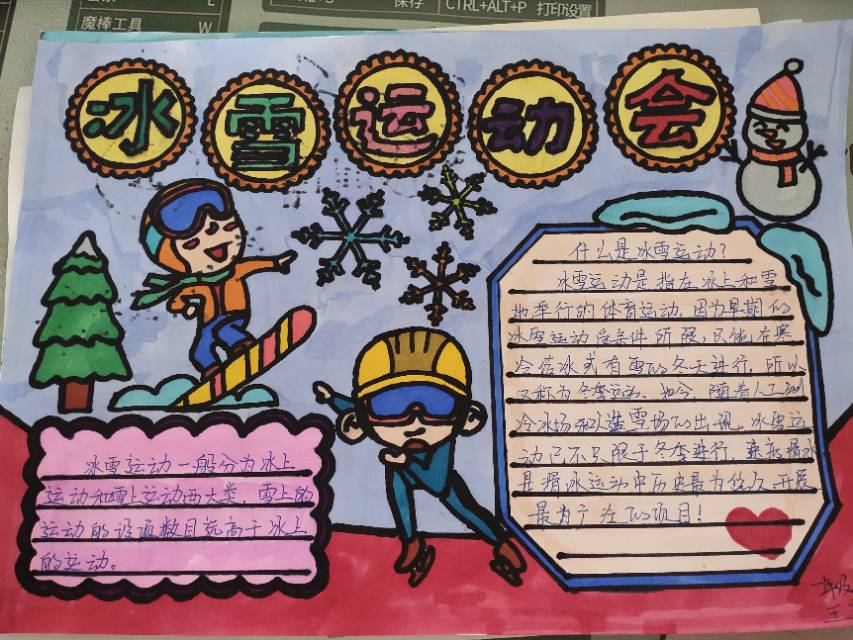 保存
CTRL+ALT+P 打印设置
魔棒工具 W
冰雪运动会
什么是冰雪运动？
冰雪运动是指在冰上和雪
地举行的体育运动，因为早期的
冰雪运动受条件所限，只能在寒
冷结冰或有雪的冬天进行，所以
又称为冬季运动。如今，随着人工
冷冰场和人造雪场的出现，冰雪运
动已不只限于冬季进行，
是滑冰运动中历史最为悠久，开展
最为广泛的项目！
冰雪运动一般分为冰上
运动和雪上运动两大类，雪上的
运动的设项数目远高于冰上
的运动。